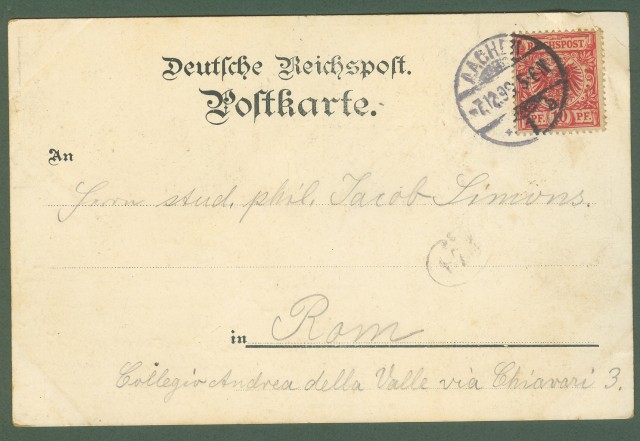 Deutsche Reichspost.
Postkarte.
AACHEN
7.12.9
REICHSPOST
PF. 10 PF.
An
Herrn stud. phil. Jacob Simons.
in Rom
Collegio Andrea della Valle via Chiavari 3.